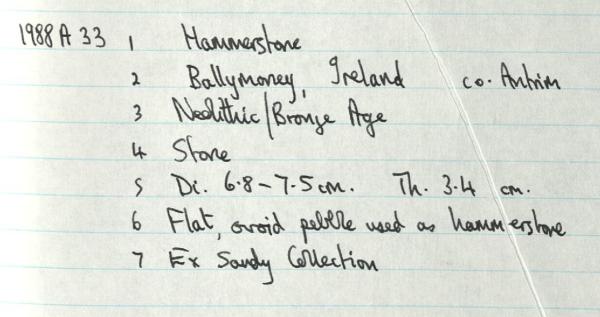 1988 A 33 1 Hammerstone
2 Ballymoney, Ireland co. Antrim
3 Neolithic/Bronze Age
4 Stone
5 Di. 6.8-7.5 cm. Th. 3.4 cm.
6 Flat, ovoid pebble used as hammerstone
7 Ex Sandy Collection